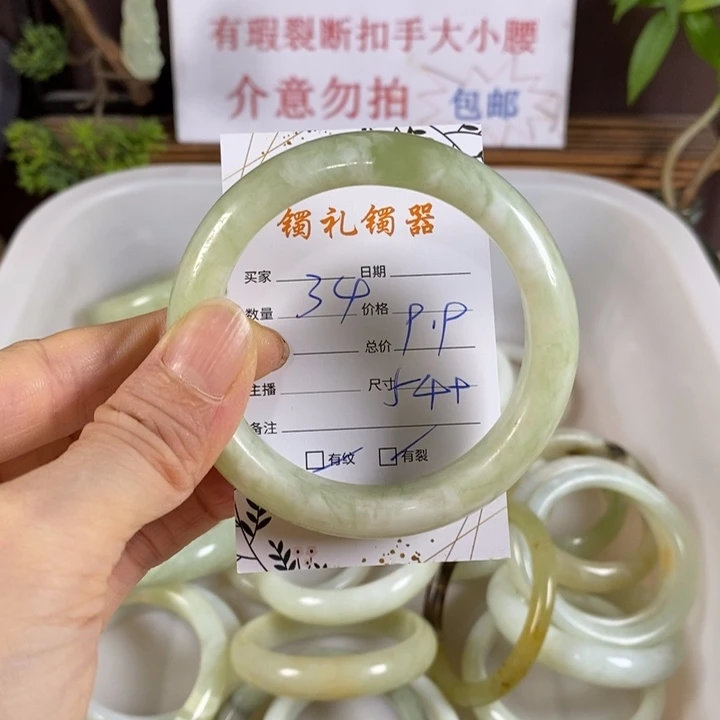 有瑕裂断扣手大小腰
介意勿拍 包邮
镯礼镯器
买家 34 日期
数量 价格 9.9
总价
主播 尺寸 54++
备注
☐有纹 ☐有裂